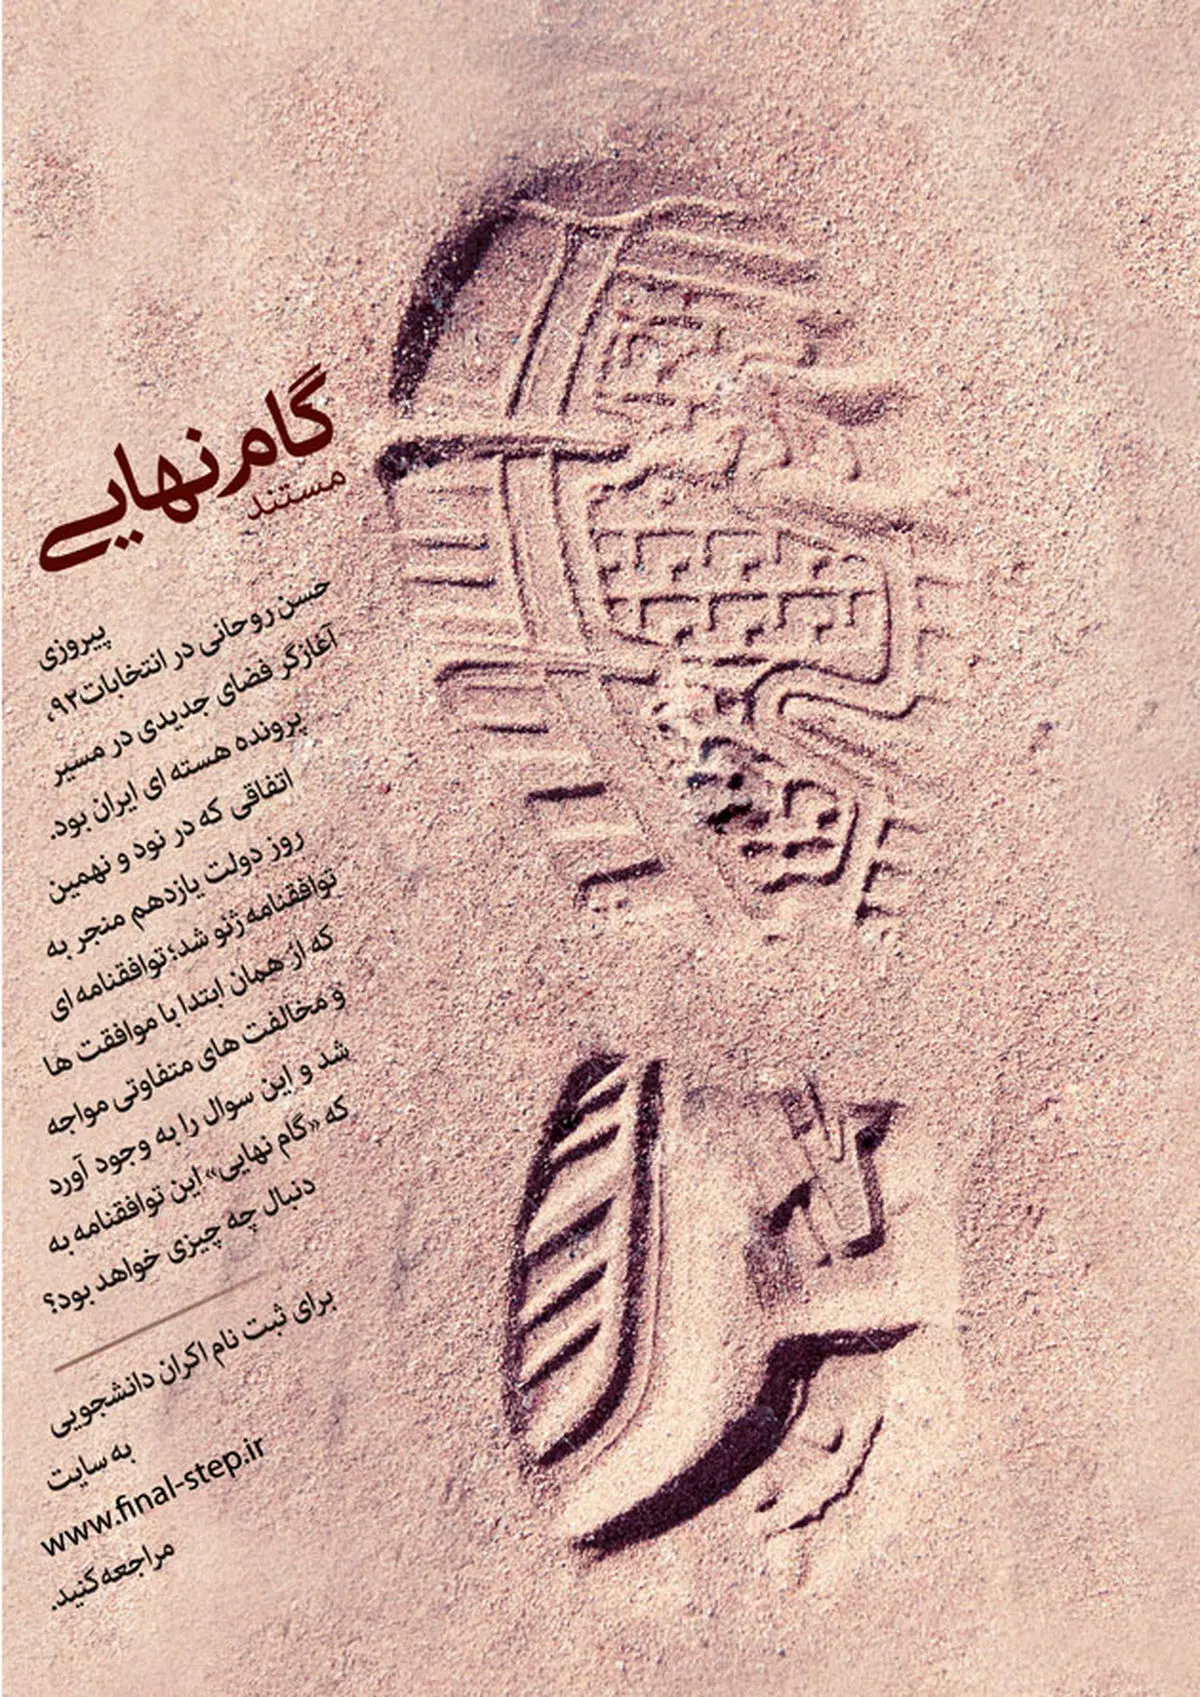 گام نهایی
مستند
پیروزی
حسن روحانی در انتخابات ۹۲،
آغازگر فضای جدیدی در مسیر
پرونده هسته ای ایران بود.
اتفاقی که در نود و نهمین
روز دولت یازدهم منجر به
توافقنامه ژنو شد؛ توافقنامه ای
که از همان ابتدا با موافقت ها
و مخالفت های متفاوتی مواجه
شد و این سوال را به وجود آورد
که «گام نهایی» این توافقنامه به
دنبال چه چیزی خواهد بود؟
برای ثبت نام اکران دانشجویی
به سایت
www.final-step.ir
مراجعه کنید.